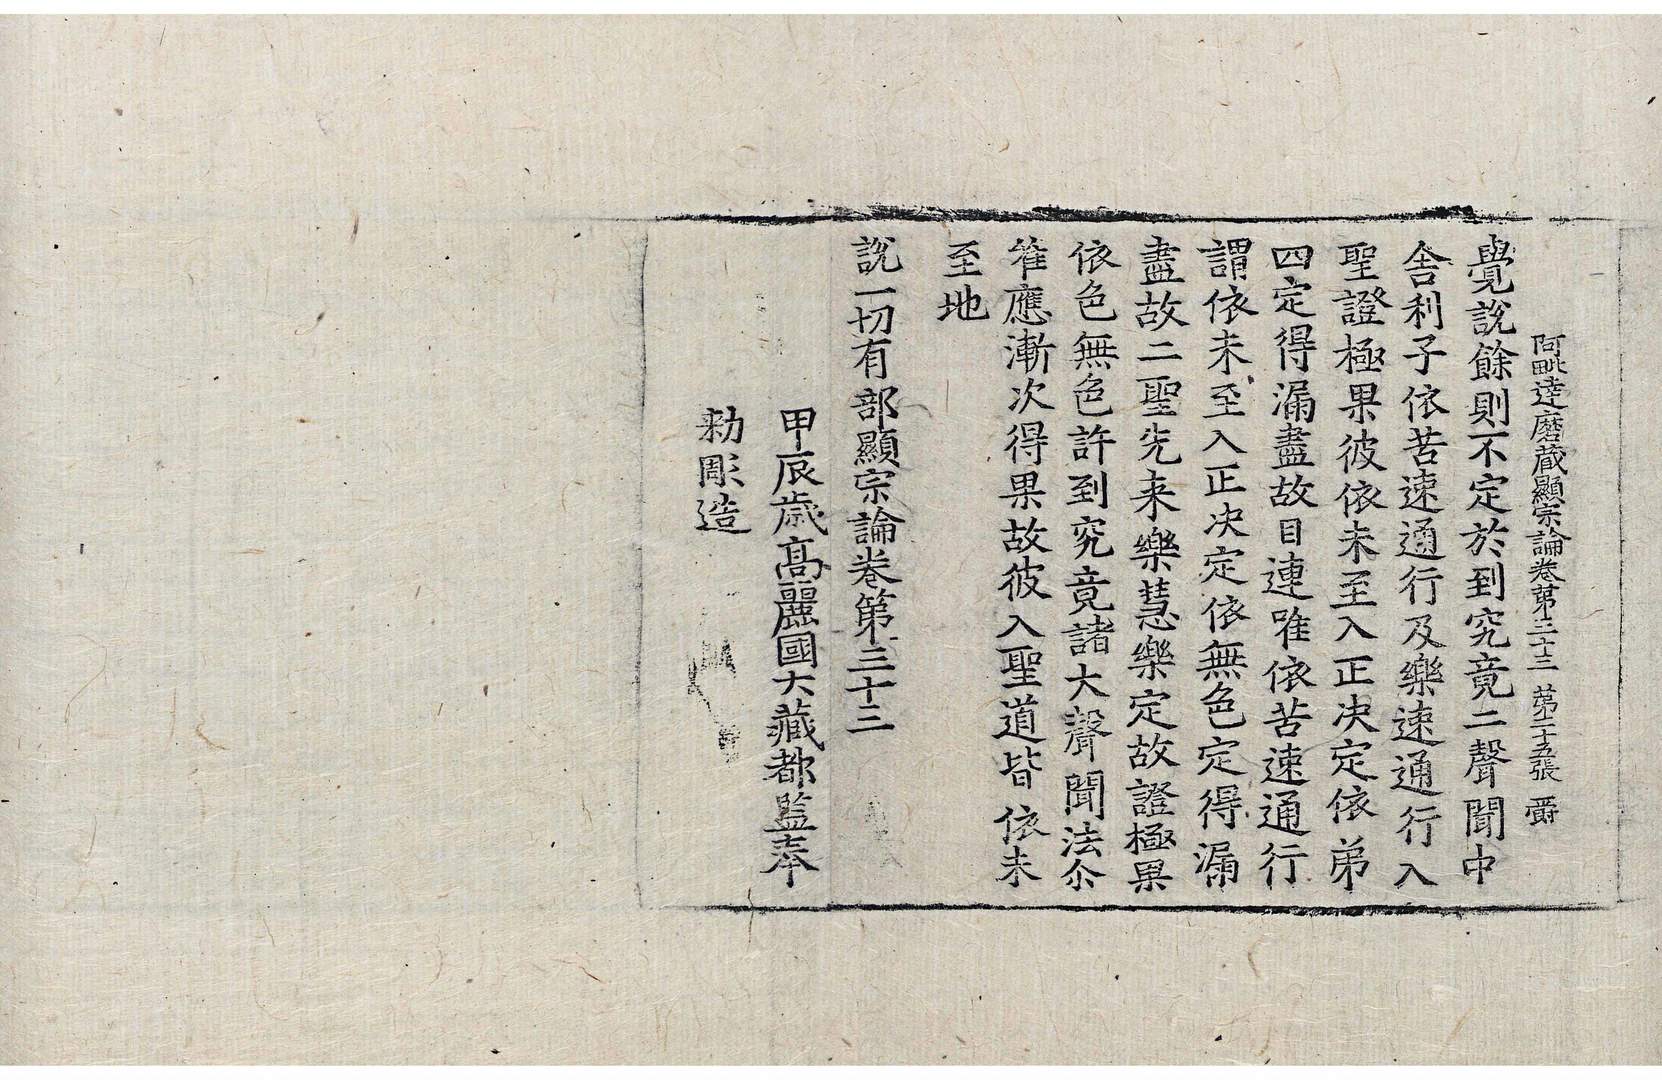 阿毗達磨蔵顯宗論卷第三十三　第二十五張　爵
覺說餘則不定於到究竟二聲聞中
舍利子依苦速通行及樂速通行入
聖證極果彼依未至入正决定依弟
四定得漏盡故目連唯依苦速通行
謂依未至入正决定依無色定得漏
盡故二聖先来樂慧樂定故證極果
依色無色許到究竟諸大聲聞法尒
唯應漸次得果故彼入聖道皆依未
至地
說一切有部顯宗論卷第三十三
甲辰歲高麗國大藏都監奉
勅彫造